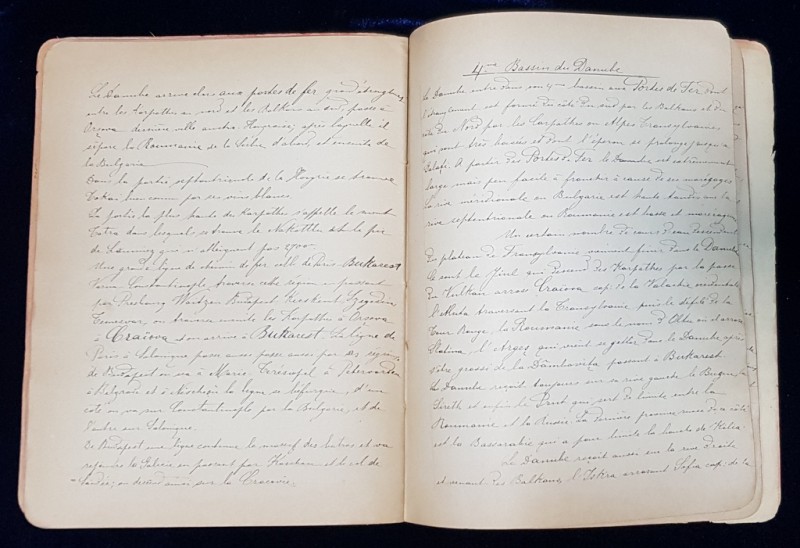 Le Danube arrive alors aux portes de fer grand étranglement
entre les Karpathes au nord et les Balkans au sud, passe à
Orsova dernière ville austro-Hongroise, après laquelle il
sépare la Roumanie de la Serbie d'abord, et ensuite de
la Bulgarie
Dans la partie septentrionale de la Hongrie se trouve
Tokai bien connu par ses vins blancs.
La partie la plus haute des Karpathes s'appelle le mont
Tatra dans lequel se trouve le
de qui atteignent pas 2700.
Une grande ligne de chemin de fer relie Paris Bukarest
Constantinople, traverse cette région en passant
par Presbourg Budapest Szegedin
Temesvar, on traverse ensuite les Karpathes à Orsova
à Craiova et on arrive à Bukarest. La ligne de
Paris à Salonique passe aussi par ces régions
de Budapest on va à Marie Térésiopol à Peterwardein
à Belgrade et à la ligne se bifurque, d'un
côté on va sur Constantinople par la Bulgarie, et de
l'autre sur Salonique.
De Budapest une ligne contourne le massif des Mâtras et va
rejoindre la Galicie en passant par Kaschau et le col de
on descend ainsi sur la Cracovie.
4me Bassin du Danube
Le Danube entre dans son 4me bassin aux Portes de Fer dont
l'étranglement est formé du côté du sud par les Balkans et du
côté du Nord par les Karpathes ou Alpes Transylvaines
qui sont très hautes et dont l'éperon se prolonge jusqu'à
Galatz. A partir des Portes de Fer le Danube est extrêmement
large mais peu facile à franchir à cause de ses marécages
La rive méridionale ou Bulgarie est haute tandis que la
rive septentrionale ou Roumanie est basse et marécageuse
Un certain nombre de cours d'eau descendant
du plateau de Transylvanie viennent finir dans le Danube
Ce sont le Jiul qui descend des Karpathes par la passe
du Vulkan arrose Craiova cap. de la Valachie occidentale
l'Aluta traversant la Transylvanie, puis le défilé de la
Tour Rouge, la Roumanie sous le nom d'Olto et arrose
Slatina, l'Arges qui vient se jeter dans le Danube après
s'être grossi de la Dâmbovitza passant à Bukarest.
Le Danube reçoit toujours sur sa rive gauche le
Sereth et enfin le Prut qui sert de limite entre la
Roumanie et la Russie. La dernière province russe de ce côté
est la Bessarabie qui a pour limite la
Le Danube reçoit aussi sur la rive droite
et venant des Balkans, l'Iskra arrosant Sofia cap. de la